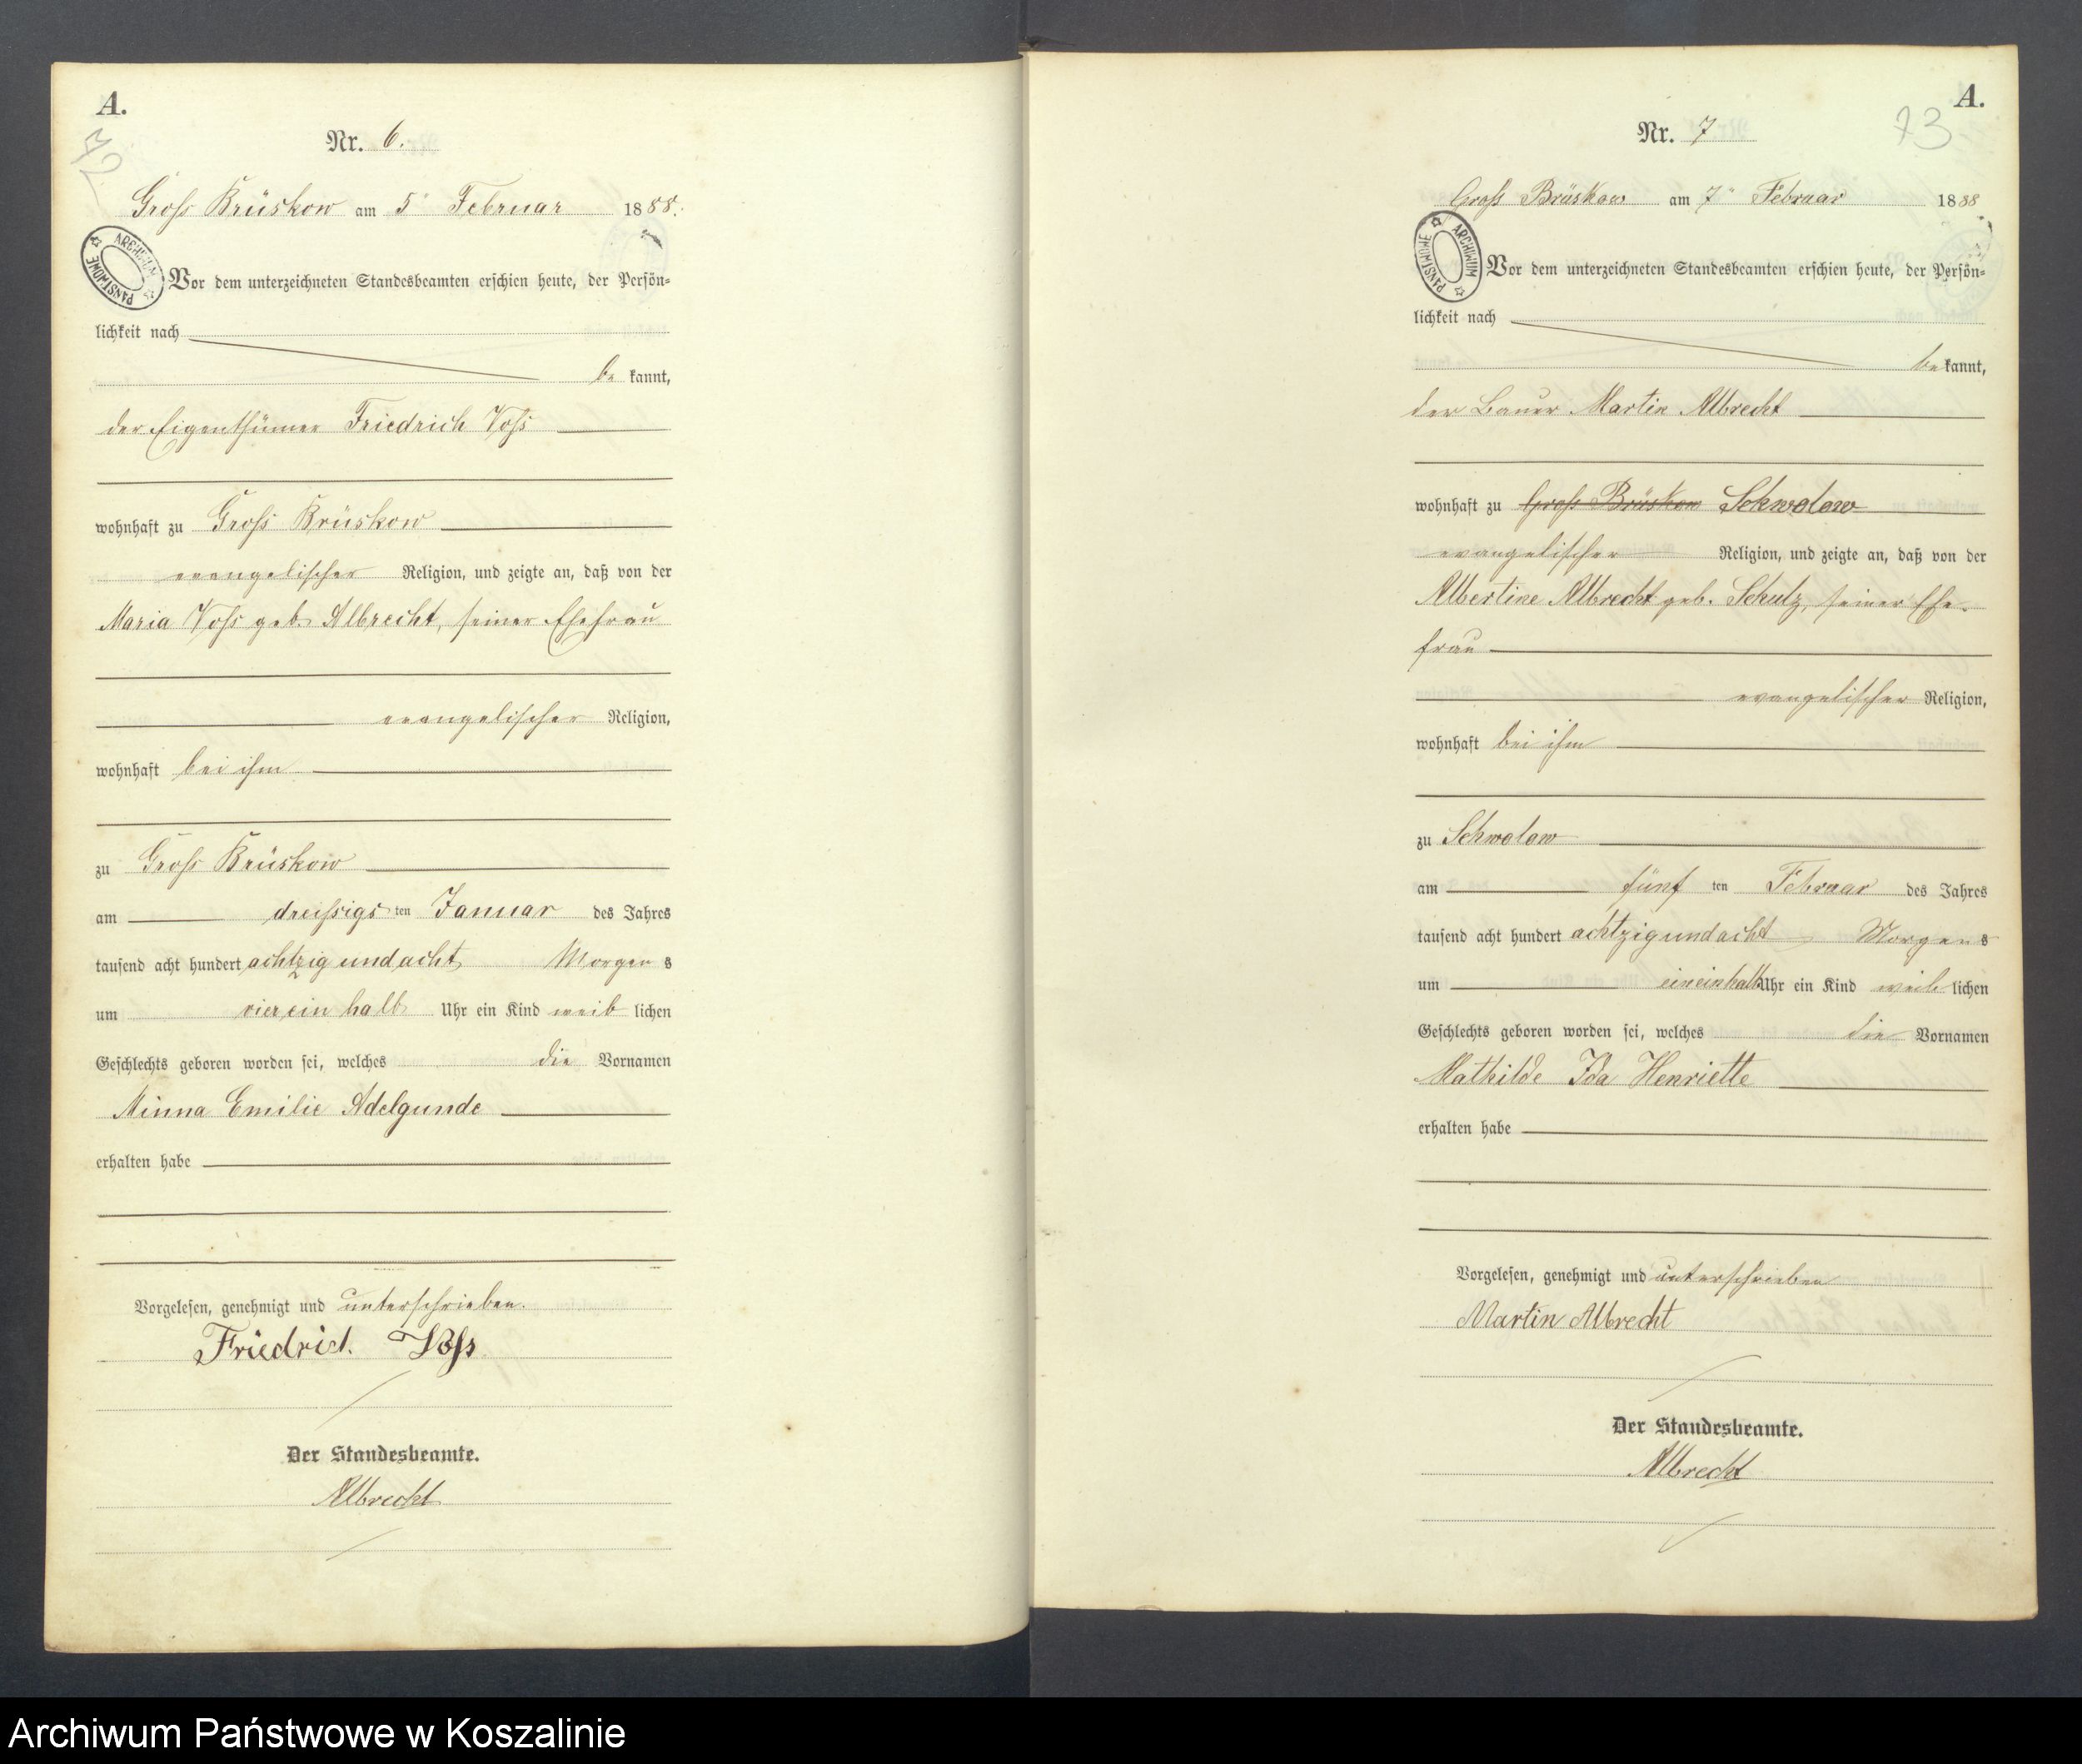 A.
72
Nr. 6.
Gross Brüskow am 5ᵗ Februar 1888.
ARCHIWUM PAŃSTWOWE
Vor dem unterzeichneten Standesbeamten erschien heute, der Persön-
lichkeit nach
be kannt,
der Eigenthümer Friedrich Voss
wohnhaft zu Gross Brüskow
evangelischer Religion, und zeigte an, daß von der
Maria Voss geb. Albrecht, seiner Ehefrau
evangelischer Religion,
wohnhaft bei ihm
zu Gross Brüskow
am dreissigs ten Januar des Jahres
tausend acht hundert achtzig und acht Morgen s
um vier ein halb Uhr ein Kind weib lichen
Geschlechts geboren worden sei, welches die Vornamen
Minna Emilie Adelgunde
erhalten habe
Vorgelesen, genehmigt und unterschrieben.
Friedrich Voss
Der Standesbeamte.
Albrecht
A.
73
Nr. 7
Gross Brüskow am 7ᵗ Februar 1888
ARCHIWUM PAŃSTWOWE
Vor dem unterzeichneten Standesbeamten erschien heute, der Persön-
lichkeit nach
be kannt,
der Bauer Martin Albrecht
wohnhaft zu Gross Brüskow Schwolow
evangelischer Religion, und zeigte an, daß von der
Albertine Albrecht geb. Schulz, seiner Ehe-
frau
evangelischer Religion,
wohnhaft bei ihm
zu Schwolow
am fünf ten Februar des Jahres
tausend acht hundert achtzig und acht Morgen s
um ein einhalb Uhr ein Kind weib lichen
Geschlechts geboren worden sei, welches die Vornamen
Mathilde Ida Henriette
erhalten habe
Vorgelesen, genehmigt und unterschrieben
Martin Albrecht
Der Standesbeamte.
Albrecht
Archiwum Państwowe w Koszalinie